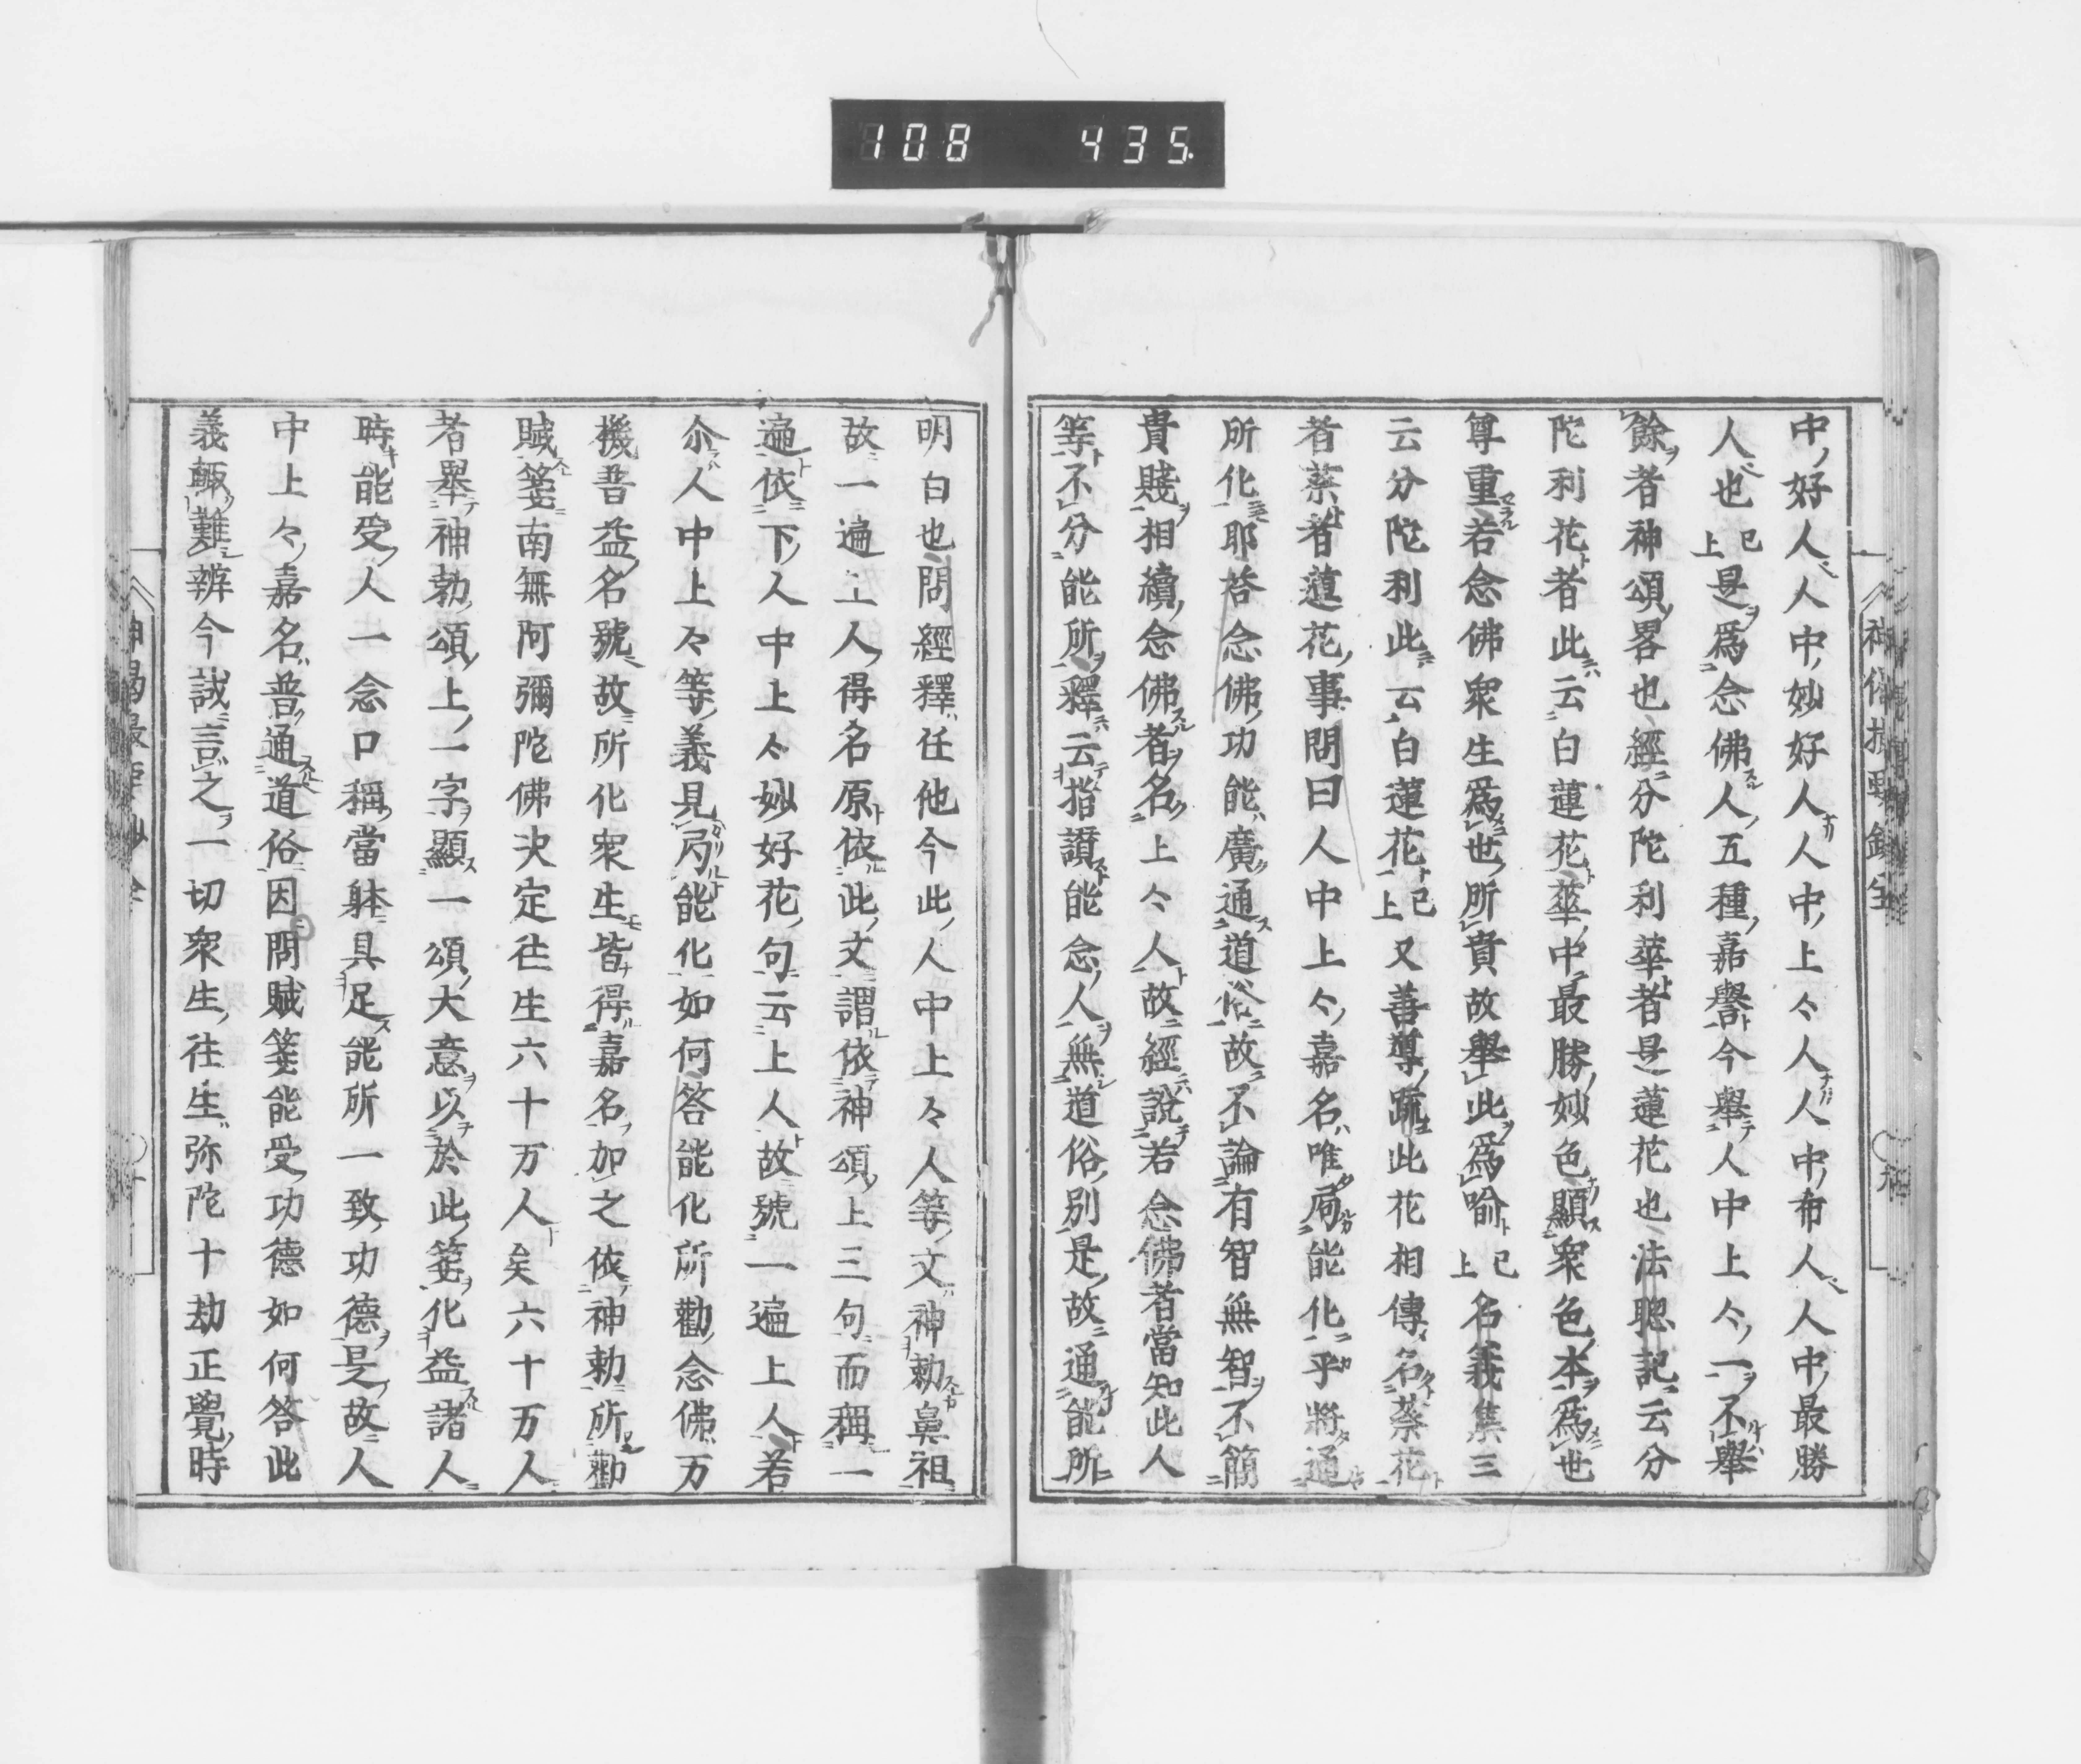 108 435.
中好人人中妙好人人中上々人人中希人人中最勝
人也已上是爲念佛人五種嘉譽今舉人中上々一不舉
餘者神頌畧也經分陀利華者是蓮花也法聰記云分
陀利花者此云白蓮花華中最勝妙色顯衆色本爲世
尊重若念佛衆生爲世所貴故舉此爲喻已上名義集三
云分陀利此云白蓮花已上又善導疏此花相傳名蔡花
者蔡者蓮花事問曰人中上々嘉名唯局能化乎將通
所化耶答念佛功能廣通道俗故不論有智無智不簡
貴賤相續念佛者名上々人故經說若念佛者當知此人
等不分能所釋云指讃能念人無道俗別是故通能所
明白也問經釋任他今此人中上々人等文神勅鼻祖
故一遍上人得名原依此文謂依神頌上三句而稱一
遍依下人中上々妙好花句云上人故號一遍上人若
尒人中上々等義見局能化如何答能化所勸念佛万
機吾益名號故所化衆生皆得嘉名加之依神勅所勸
賊筭南無阿彌陀佛決定往生六十万人矣六十万人
者舉神勅頌上一字顯一頌大意以於此筭化益諸人
時能受人一念口稱當躰具足能所一致功德是故人
中上々嘉名普通道俗因問賊筭能受功德如何答此
義輙難辨今誠言之一切衆生往生弥陀十劫正覺時